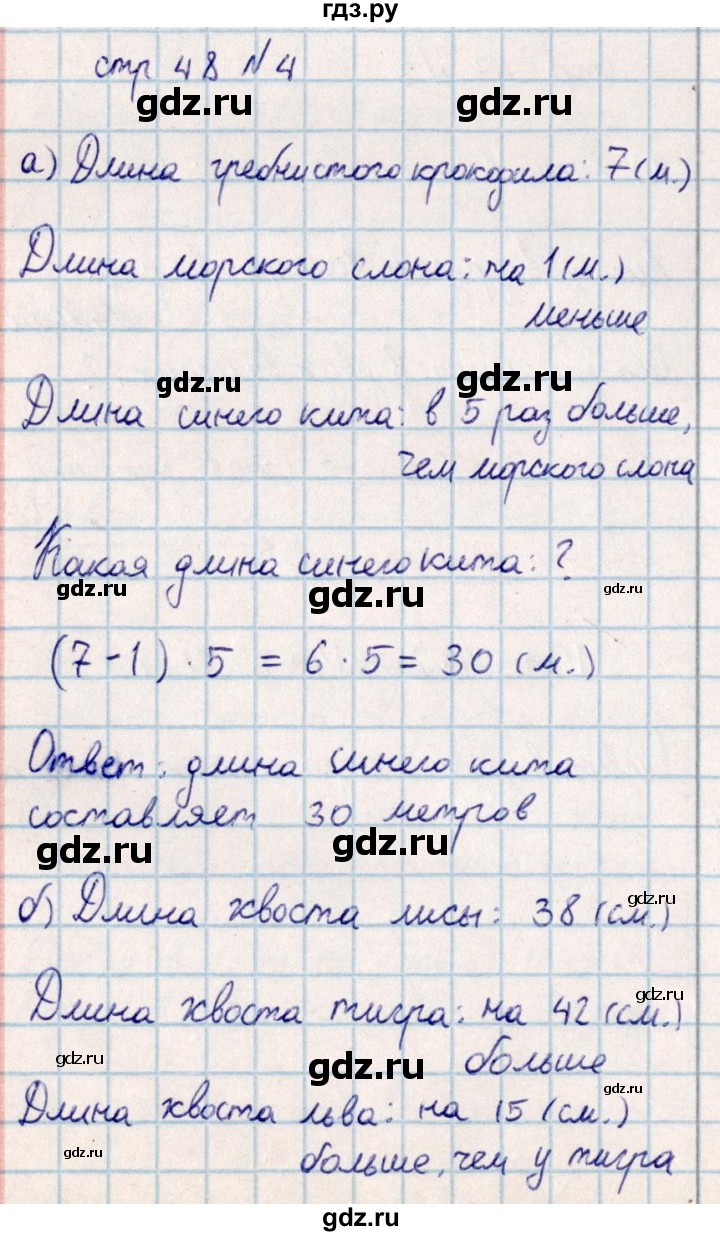 гдз.ру
стр 48 №4
gdz.ru gdz.ru
а) Длина гребнистого крокодила: 7 (м.)
Длина морского слона: на 1 (м.)
меньше
gdz.ru gdz.ru
Длина синего кита: в 5 раз больше,
чем морского слона
Какая длина синего кита: ?
gdz.ru gdz.ru gdz.ru
(7-1) · 5 = 6 · 5 = 30 (м.)
Ответ: длина синего кита
составляет 30 метров
gdz.ru gdz.ru
б) Длина хвоста лисы: 38 (см.)
gdz.ru
Длина хвоста тигра: на 42 (см.)
больше
gdz.ru gdz.ru gdz.ru
Длина хвоста льва: на 15 (см.)
больше, чем у тигра
gdz.ru
gdz.ru